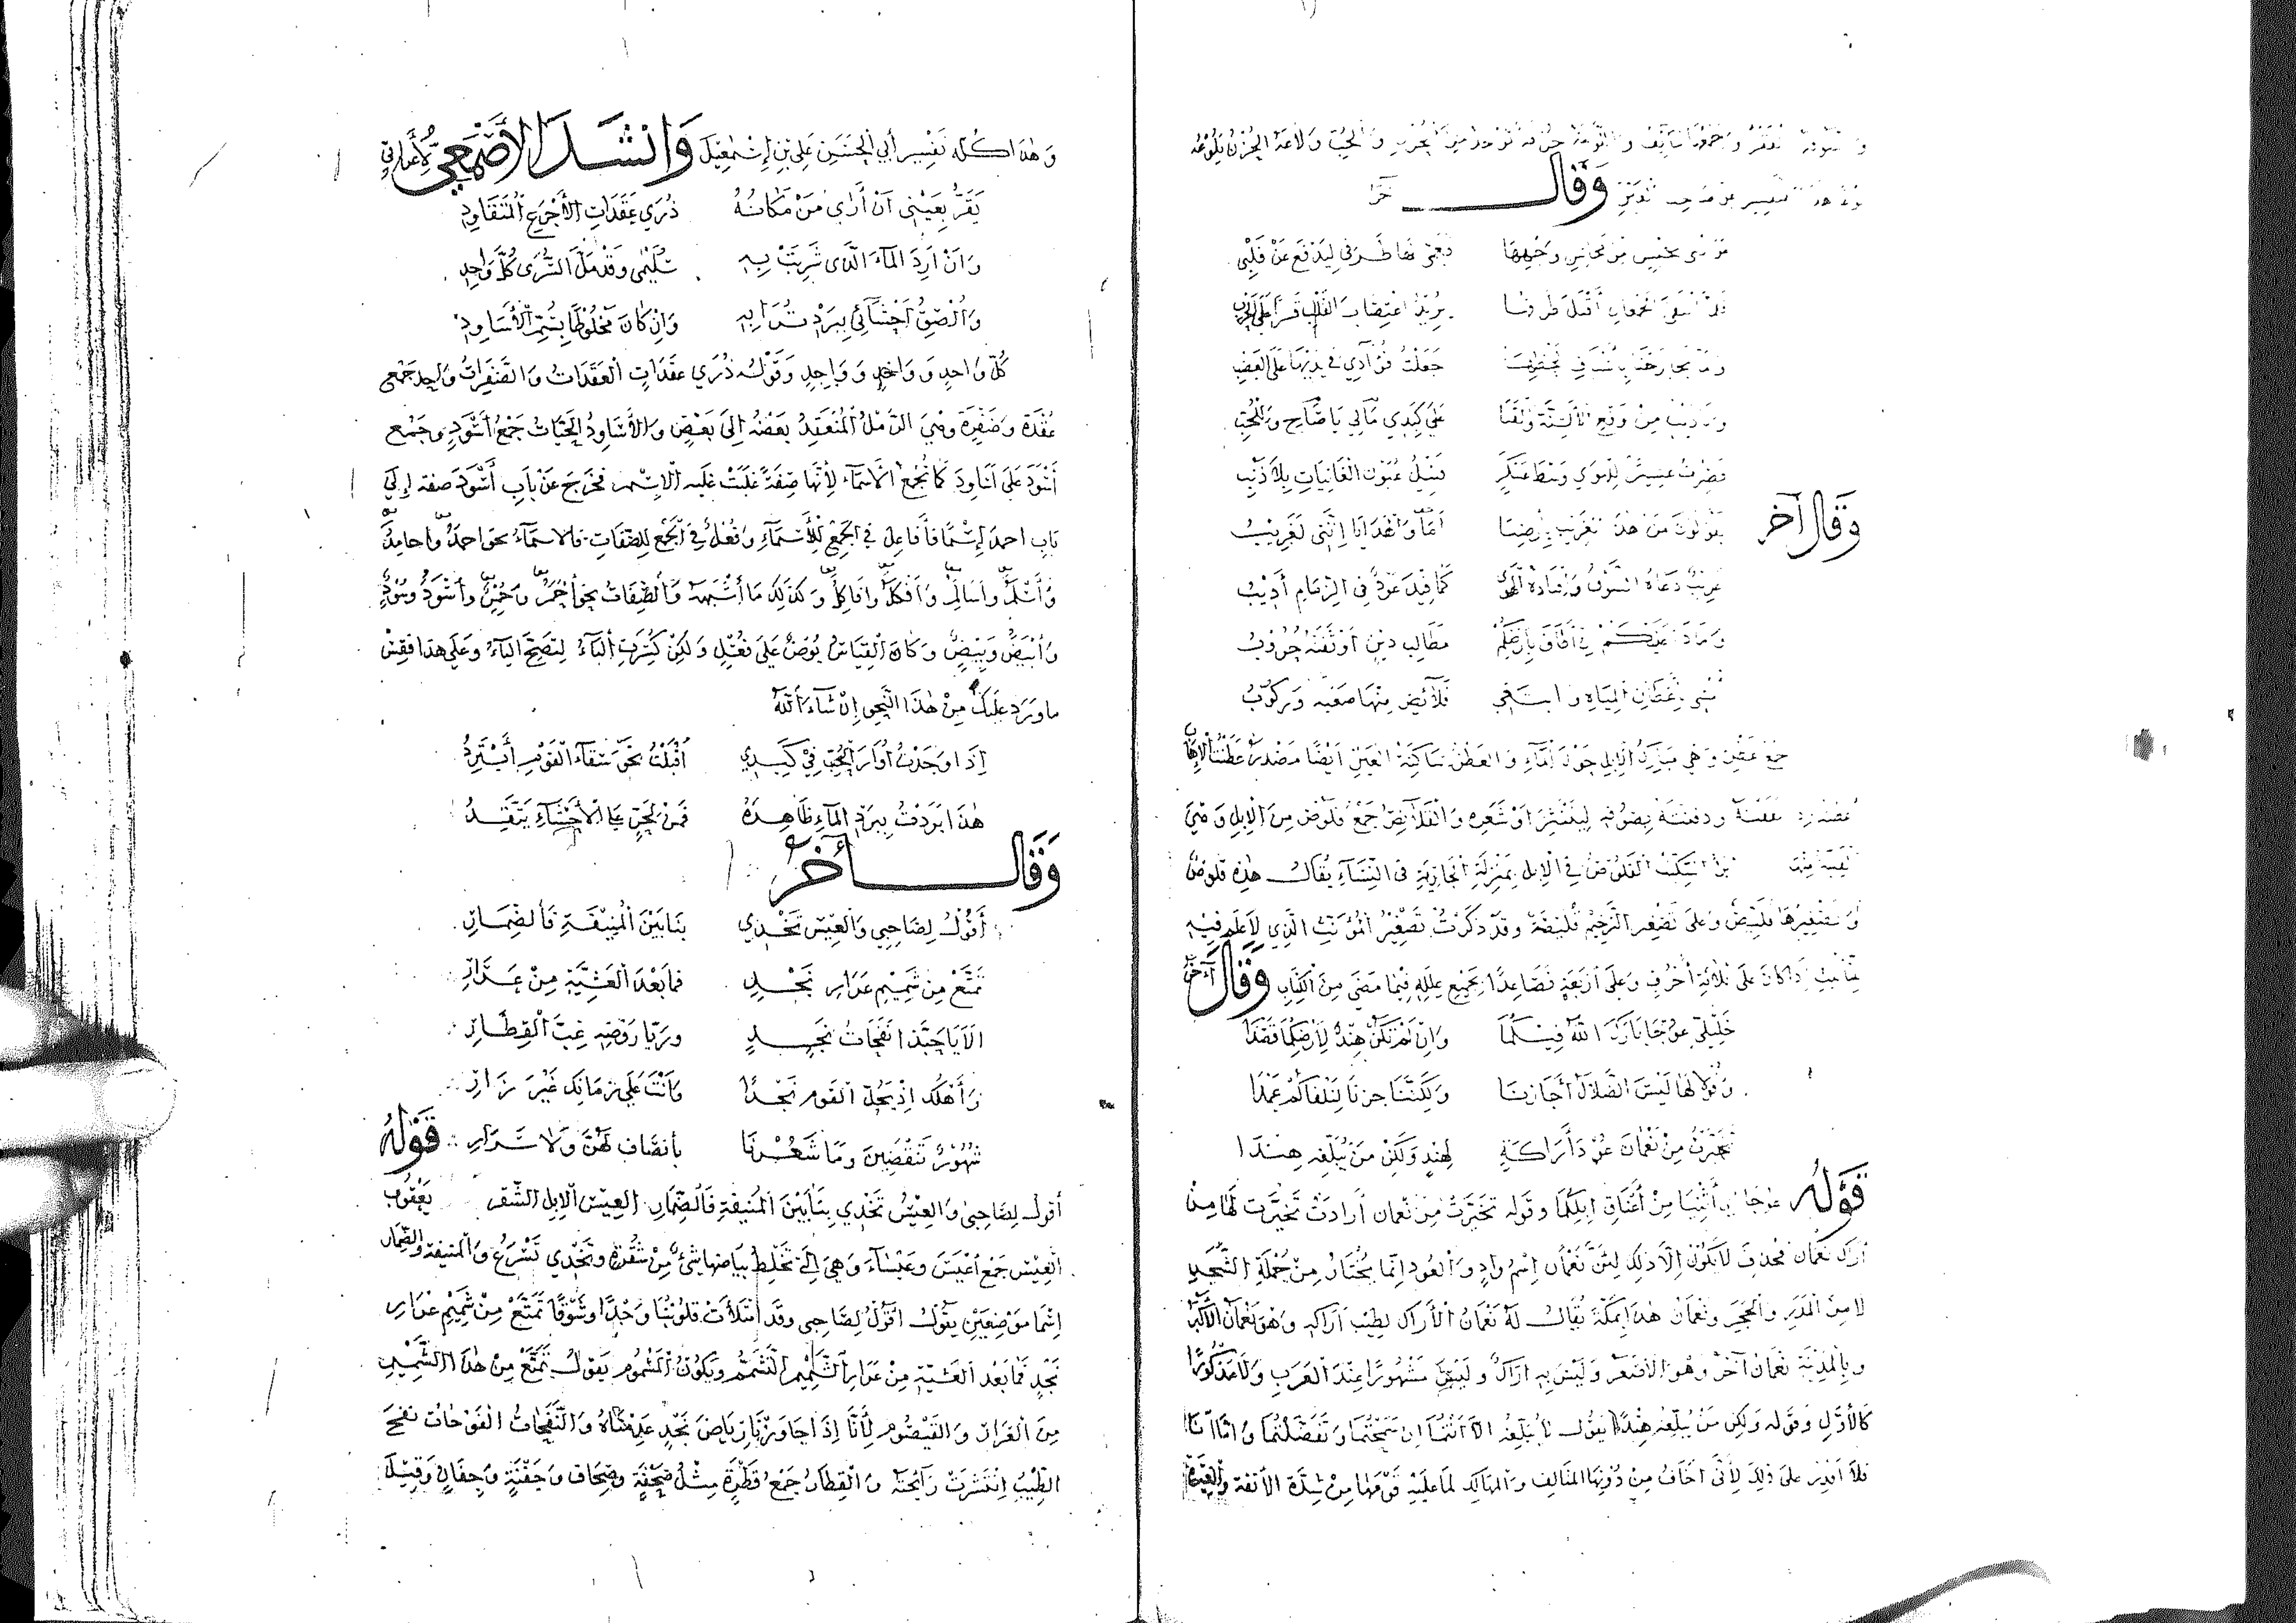 وَقَالَ آخَرُ
دَعَتْنِي بِهَا طَرْفِي لِيَدْفَعَ عَنْ قَلْبِي
يُرِيدُ اغْتِصَابَ القَلْبِ قَسْرًا عَلَى الحَرْبِ
جَعَلْتُ فُؤَادِي فِي يَدَيْهَا عَلَى العَضْبِ
وَنَادَيْتُ مِنْ وَقْعِ الأَسِنَّةِ وَالقَنَا عَلَى كَبِدِي مَالِي يَا صَاحِ وَلِلْحُبِّ
قَتِيلُ عُيُونِ الغَانِيَاتِ بِلَا ذَنْبِ
وَقَالَ آخَرُ
يَقُولُونَ مَنْ هَذَا الغَرِيبُ بِأَرْضِنَا أَمَا وَالهَدَايَا إِنَّنِي لَغَرِيبُ
غَرِيبٌ دَعَاهُ الشَّوْقُ وَاقْتَادَهُ الهَوَى كَمَا قِيدَ عَوْدٌ فِي الزِّمَامِ أَدِيبُ
وَمَاذَا عَلَيْكُمْ إِنْ أَطَافَ بِأَرْضِكُمْ مَطَالِبُ دَيْنٍ أَوْ نَفَتْهُ حُرُوبُ
أَمْشِي بِأَعْطَانِ المِيَاهِ وَأَبْتَغِي قَلَائِصَ مِنْهَا صَعْبَةٌ وَرَكُوبُ
جمع عَطَنٍ وَهِيَ مَبَارِكُ الإِبِلِ حَوْلَ المَاءِ وَالعَطْنُ سَاكِنَةُ العَيْنِ أَيْضًا مَصْدَرُ عَطَنْتُ الإِهَابَ
لِيَنْتَثِرَ أَوْ شَعَرِهِ وَالقَلَائِصُ جَمْعُ قَلُوصٍ مِنَ الإِبِلِ وَهِيَ
الفَتِيَّةُ مِنْهَا ابْنُ السِّكِّيتِ القَلُوصُ فِي الإِبِلِ بِمَنْزِلَةِ الجَارِيَةِ فِي النِّسَاءِ يُقَالُ هَذِهِ قَلُوصٌ
وَتَصْغِيرُهَا قُلَيِّصٌ وَعَلَى تَصْغِيرِ التَّرْخِيمِ قُلَيْصَةٌ وَقَدْ ذَكَرْتُ تَصْغِيرَ المُؤَنَّثِ الَّذِي لَا عَلَمَ فِيهِ
لِلتَّأْنِيثِ إِذَا كَانَ عَلَى ثَلَاثَةِ أَحْرُفٍ وَعَلَى أَرْبَعَةٍ فَصَاعِدًا بِجَمِيعِ عِلَلِهِ فِيمَا مَضَى مِنَ الكِتَابِ وَقَالَ آخَرُ
خَلِيلَيَّ عُوجَا بَارَكَ اللَّهُ فِيكُمَا وَإِنْ لَمْ تَكُنْ هِنْدٌ لِأَرْضِكُمَا قَصْدَا
وَقُولَا لَهَا لَيْسَ الضَّلَالُ أَجَازَنَا وَلَكِنَّنَا جُزْنَا لِنَلْقَاكُمُ عَمْدَا
تَخَيَّرْتُ مِنْ نَعْمَانَ عُودَ أَرَاكَةٍ لِهِنْدٍ وَلَكِنْ مَنْ يُبَلِّغُهُ هِنْدَا
قَوْلُهُ عُوجَا أي أَثْنِيَا مِنْ أَعْنَاقِ إِبِلِكُمَا وَقَوْلُهُ تَخَيَّرْتُ مِنْ نَعْمَانَ أَرَادَتْ تَخَيَّرَتْ لَهَا مِنْ
أَرَاكِ نَعْمَانَ فَحَذَفَ لَا يَكُونُ إِلَّا ذَلِكَ لِأَنَّ نَعْمَانَ اسْمُ وَادٍ وَالعُودُ إِنَّمَا يُخْتَارُ مِنْ جُمْلَةِ الشَّجَرِ
لَا مِنَ المَدَرِ وَالحَجَرِ وَنَعْمَانُ هَذَا بِمَكَّةَ يُقَالُ لَهُ نَعْمَانُ الأَرَاكِ لِطِيبِ أَرَاكِهِ وَهُوَ نَعْمَانُ الأَكْبَرُ
وَبِالمَدِينَةِ نَعْمَانُ آخَرُ وَهُوَ الأَصْغَرُ وَلَيْسَ بِهِ أَرَاكٌ وَلَيْسَ مَشْهُورًا عِنْدَ العَرَبِ وَلَا مَذْكُورًا
كَالأَوَّلِ وَقَوْلُهُ وَلَكِنْ مَنْ يُبَلِّغُهُ هِنْدَا يَقُولُ لَا يُبَلِّغُهُ إِلَّا أَنْتُمَا إِنْ سَمَحْتُمَا وَتَفَضَّلْتُمَا وَأَمَّا أَنَا
فَلَا أَقْدِرُ عَلَى ذَلِكَ لِأَنِّي أَخَافُ مِنْ دُونِهَا المَتَالِفَ وَالمَهَالِكَ لِمَا عَلَيْهِ قَوْمُهَا مِنْ شِدَّةِ الأَنَفَةِ وَالغَيْرَةِ
وَهَذَا كُلُّهُ تَفْسِيرُ أَبِي الحَسَنِ عَلِيِّ بْنِ إِسْمَعِيلَ وَأَنْشَدَ الأَصْمَعِيُّ لِأَعْرَابِيٍّ
يَقَرُّ بِعَيْنِي أَنْ أَرَى مَنْ مَكَانُهُ ذُرَى عَقَدَاتِ الأَجْرَعِ المُتَقَاوِدِ
وَأَنْ أَرِدَ المَاءَ الَّذِي شَرِبَتْ بِهِ سُلَيْمَى وَقَدْ مَلَّ السُّرَى كُلُّ وَاخِدِ
وَأُلْصِقُ أَحْشَائِي بِبَرْدِ تُرَابِهِ وَإِنْ كَانَ مَخْلُوطًا بِسُمِّ الأَسَاوِدِ
كُلُّ وَاحِدٍ وَوَاخِدٍ وَوَاجِدٍ وَقَوْلُهُ ذُرَى عَقَدَاتِ العَقَدَاتُ وَالضَّفِرَاتُ وَاحِدٌ جَمْعُ
عُقْدَةٍ وَضَفِرَةٍ وَهِيَ الرَّمْلُ المُنْعَقِدُ بَعْضُهُ إِلَى بَعْضٍ وَالأَسَاوِدُ الحَيَّاتُ جَمْعُ أَسْوَدٍ وَجَمْعُ
أَسْوَدَ عَلَى أَسَاوِدَ كَمَا تُجْمَعُ الأَسْمَاءُ لِأَنَّهَا صِفَةٌ غَلَبَتْ غَلَبَةَ الِاسْمِ فَخَرَجَ عَنْ بَابِ أَسْوَدَ صفة إِلَى
بَابِ أحمد اسْمًا فَأَفَاعِلُ فِي الجَمْعِ لِلْأَسْمَاءِ وَفُعْلٌ فِي الجَمْعِ لِلصِّفَاتِ فَالأَسْمَاءُ نحو أحمد وأحامد
وَأَسْلَمَ وأسالم وَأَفْكَلَ وأفاكل وَكَذَلِكَ مَا أَشْبَهَهُ وَالصِّفَاتُ نحو أَحْمَرَ وَحُمْرٍ وَأَسْوَدَ وَسُودٍ
وَأَبْيَضَ وَبِيضٍ وَكَانَ القِيَاسُ بُوضٌ عَلَى فُعْلٍ وَلَكِنْ كُسِرَتِ البَاءُ لِتَصِحَّ اليَاءُ وَعَلَى هَذَا فَقِسْ
مَا وَرَدَ عَلَيْكَ مِنْ هَذَا النَّحْوِ إِنْ شَاءَ اللَّهُ
إِذَا وَجَدْتُ أُوَارَ الحُبِّ فِي كَبِدِي أَقْبَلْتُ نَحْوَ سِقَاءِ القَوْمِ أَبْتَرِدُ
هَذَا بَرَدْتُ بِبَرْدِ المَاءِ ظَاهِرَهُ فَمَنْ لِحَرٍّ عَلَى الأَحْشَاءِ يَتَّقِدُ
وَقَالَ آخَرُ
أَقُولُ لِصَاحِبِي وَالعِيسُ تَخْدِي بِنَا بَيْنَ المُنِيفَةِ فَالضِّمَارِ
تَمَتَّعْ مِنْ شَمِيمِ عَرَارِ نَجْدٍ فَمَا بَعْدَ العَشِيَّةِ مِنْ عَرَارِ
أَلَا يَا حَبَّذَا نَفَحَاتُ نَجْدٍ وَرَيَّا رَوْضِهِ غِبَّ القِطَارِ
وَأَهْلُكَ إِذْ يَحُلُّ القَوْمُ نَجْدًا وَأَنْتَ عَلَى زَمَانِكَ غَيْرُ زَارِ
شُهُورٌ تَنْقَضِينَ وَمَا شَعُرْنَا بِأَنْصَافٍ لَهُنَّ وَلَا سَرَارِ قَوْلُهُ
أقول لِصَاحِبِي وَالعِيسُ تَخْدِي بِنَا بَيْنَ المُنِيفَةِ فَالضِّمَارِ العِيسُ الإِبِلُ الشُّقْرُ يَعْقُوبُ
العِيسُ جَمْعُ أَعْيَسَ وَعَيْسَاءَ وَهِيَ الَّتِي تَخْلِطُ بَيَاضَهَا شَيْءٌ مِنْ شُقْرَةٍ وَتَخْدِي تُسْرِعُ وَالمُنِيفَةُ وَالضِّمَارُ
اسْمَا مَوْضِعَيْنِ يَقُولُ أَقُولُ لِصَاحِبِي وَقَدِ امْتَلَأَتْ قُلُوبُنَا وَجْدًا وَشَوْقًا تَمَتَّعْ مِنْ شَمِيمِ عَرَارِ
نَجْدٍ فَمَا بَعْدَ العَشِيَّةِ مِنْ عَرَارِ الشَّمِيمُ التَّشَمُّمُ وَيَكُونُ المَشْمُومَ يَقُولُ تَمَتَّعْ مِنْ هَذَا الشَّمِيمِ
مِنَ العَرَارِ وَالقَيْصُومِ لِأَنَّا إِذَا جَاوَزْنَا رِيَاضَ نَجْدٍ عَدِمْنَاهُ وَالنَّفَحَاتُ الفَوْحَاتُ نَفَحَ
الطِّيبُ انْتَشَرَتْ رَائِحَتُهُ وَالقِطَارُ جَمْعُ قَطْرَةٍ مِثْلُ صَحْفَةٍ وَصِحَافٍ وَجَفْنَةٍ وَجِفَانٍ وَقِيلَ